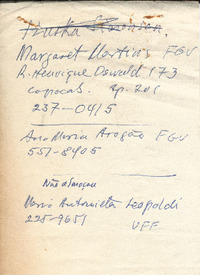 Margaret Martins FGV
R. Henrique Oswald 173
Copacab. Ap. 201
237-0415
Ana Maria Aragão FGV
551-8405
Não almoçou
Maria Antonieta Leopoldi
225-9651 UFF